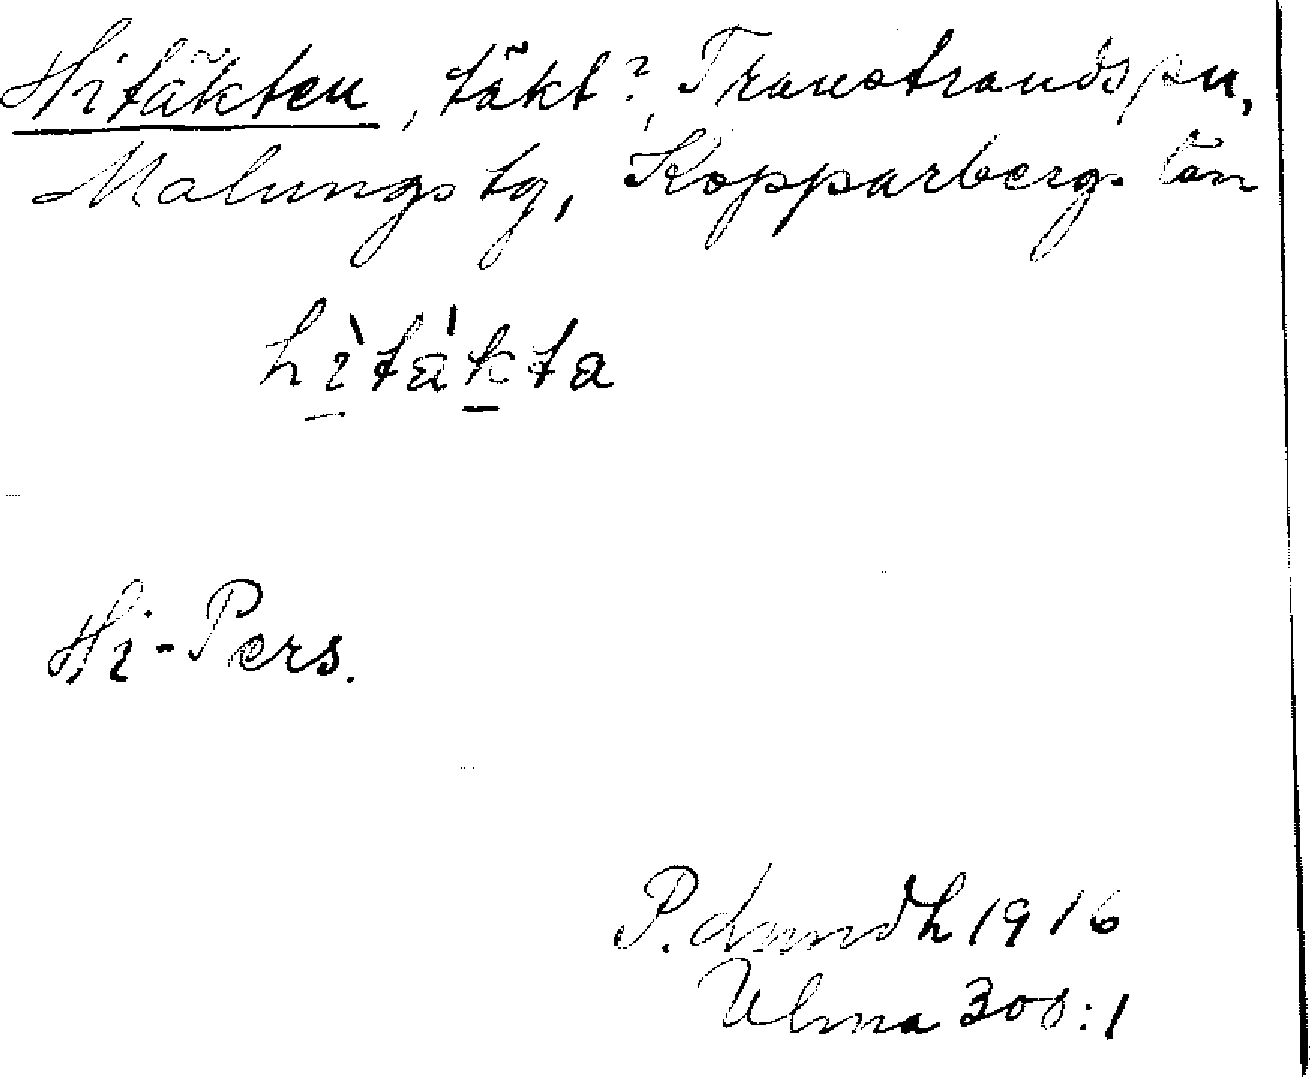 Hitäkten, täkt?, Transtrands sn,
Malungs tg, Kopparbergs län
hìtä́kta
Hi-Pers.
P. Lindh 1916
Ulma 308:1